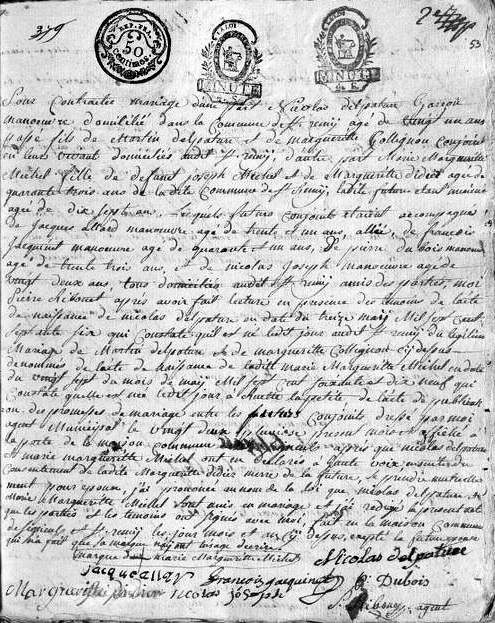 379
REP. FRA.
50
Centimes
LA LOI
MINUTE
LA LOI
MINUTE
2e
53
Pour Contracter mariage d'une part Nicolas delpature Garçon
manoeuvre domicilié dans la Commune de St. remij agé de vingt un ans
fils de Martin delpature et de marguerite Collignon Conjoints
en leur vivant domiciliés audit St. remij d'autre part Marie Marguerite
Michel fille de defunt joseph Michel et de Marguerite didier agée de
quarante trois ans de la dite Commune de St. Remij, ladite future etant mineure
agée de dix sept ans, Lesquels futurs conjoints etaient accompagnés
de Jacques Allard manoeuvre agé de trente et un ans, de francois
Jacquint manoeuvre agé de quarante et un ans, De pierre du bois manoeuvre
agé de trente trois ans, et de nicolas Joseph manoeuvre agé de
vingt deux ans, tous domiciliés audit St. remij amis des parties, moi
pierre après avoir fait lecture en presence des temoins de l'acte
de naissance de nicolas delpature en date du treize maij Mil sept cent
septante six qui Constate qu'il est né ledit jour audit St. remij du legitime
Mariage de Martin delpature et de marguerite Collignon cij dessus
denommés de l'acte de naissance de ladite marie Marguerite Michel en date
du vingt sept du mois de maij Mil sept cent soixante et dix neuf qui
Constate quelle est née ledit jour à la petite, de l'acte de publication
des promesses de mariage entre les futurs Conjoints dressé par moi
agent Municipal le vingt deux present mois et affiché à
la porte de la maison commune après que nicolas delpature
et marie marguerite Michel ont eu declarés à haute voix
Consentement de ladite Marguerite didier mere de la future, se prendre mutuellement
pour epoux, j'ai prononcé au nom de la loi que nicolas delpature et
Marie Marguerite Michel sont unis en mariage et j'ai redigé le present acte
que les parties et les temoins ont signés avec moi, fait en la maison Commune
de St. remij les jour, mois et an cij dessus, excepté la future epouse
qui a fait sa marque n'aijant usage d'ecrire.
marque de marie Marguerite Michel
Nicolas delpature
jacque allar
francois jacquinet
P. Dubois
Margueritte
nicolas joseph
agent